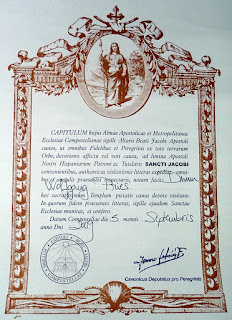 CAPITULUM hujus Almae Apostolicae et Metropolitanae
Ecclesiae Compostellanae sigilli Altaris Beati Jacobi Apostoli
custos, ut omnibus Fidelibus et Peregrinis ex toto terrarum
Orbe, devotionis affectu vel voti causa, ad limina Apostoli
Nostri Hispaniarum Patroni ac Tutelaris SANCTI JACOBI
convenientibus, authenticas visitationis litteras expediat, omni-
bus et singulis praesentes inspecturis, notum facit:
Wolfgang
hoc sacratissimum Templum pietatis causa devote visitasse.
In quorum fidem praesentes litteras, sigillo ejusdem Sanctae
Ecclesiae munitas, ei confero.
Datum Compostellae die 5 mensis Septembris
anno Dni
Canonicus Deputatus pro Peregrinis